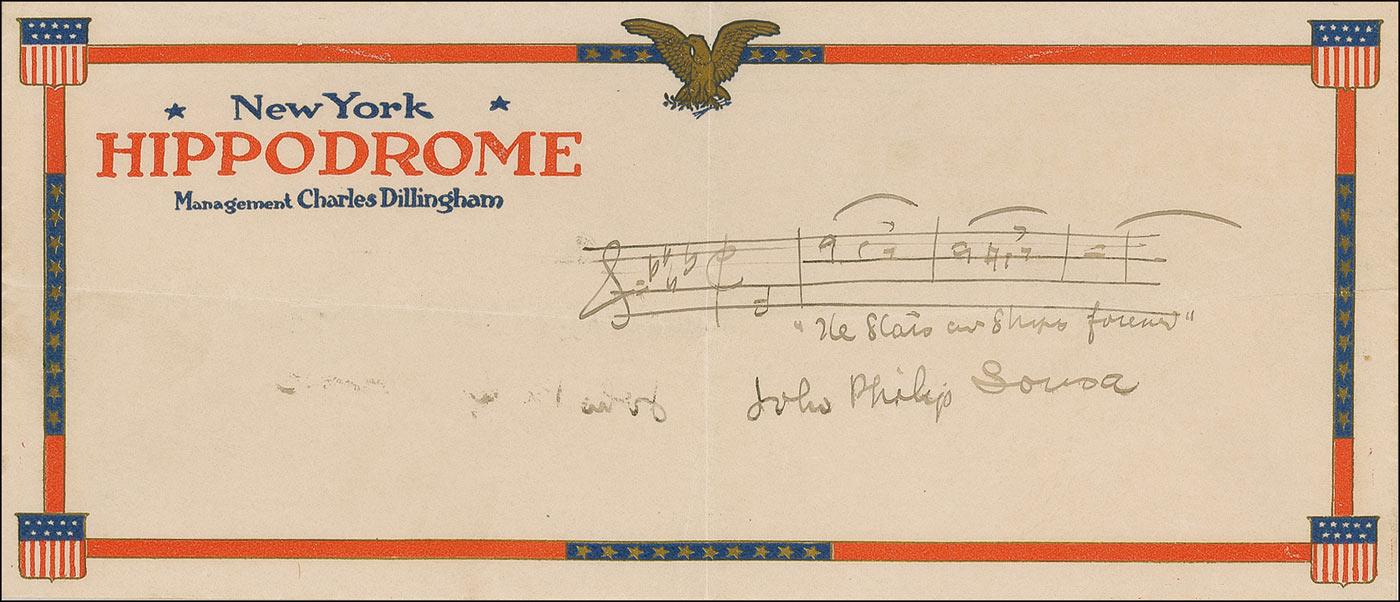 New York
HIPPODROME
Management Charles Dillingham
"The Stars and Stripes forever"
John Philip Sousa